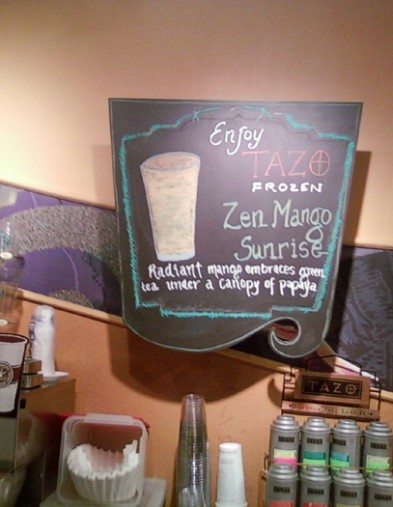 Enjoy
TAZO
FROZEN
Zen Mango
Sunrise
Radiant mango embraces green
tea under a canopy of papaya.
TAZO